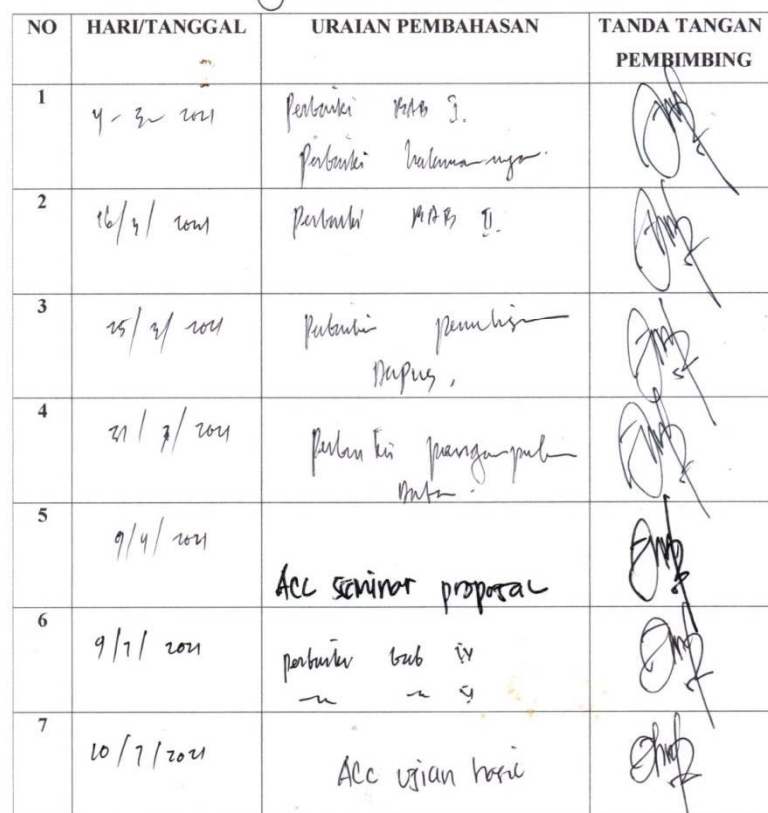 NO HARI/TANGGAL URAIAN PEMBAHASAN TANDA TANGAN
PEMBIMBING
1 4 - 3 - 2021 Perbaiki BAB I.
Perbaiki halamannya.
2 16/3/2021 Perbaiki BAB II.
3 25/3/2021 Perbaiki penulisan
Dapus,
4 31/3/2021 Perbaiki pengumpulan
Data.
5 9/4/2021
ACC seminar proposal
6 9/7/2021 perbaiki bab IV
7 10/7/2021 ACC ujian hasil